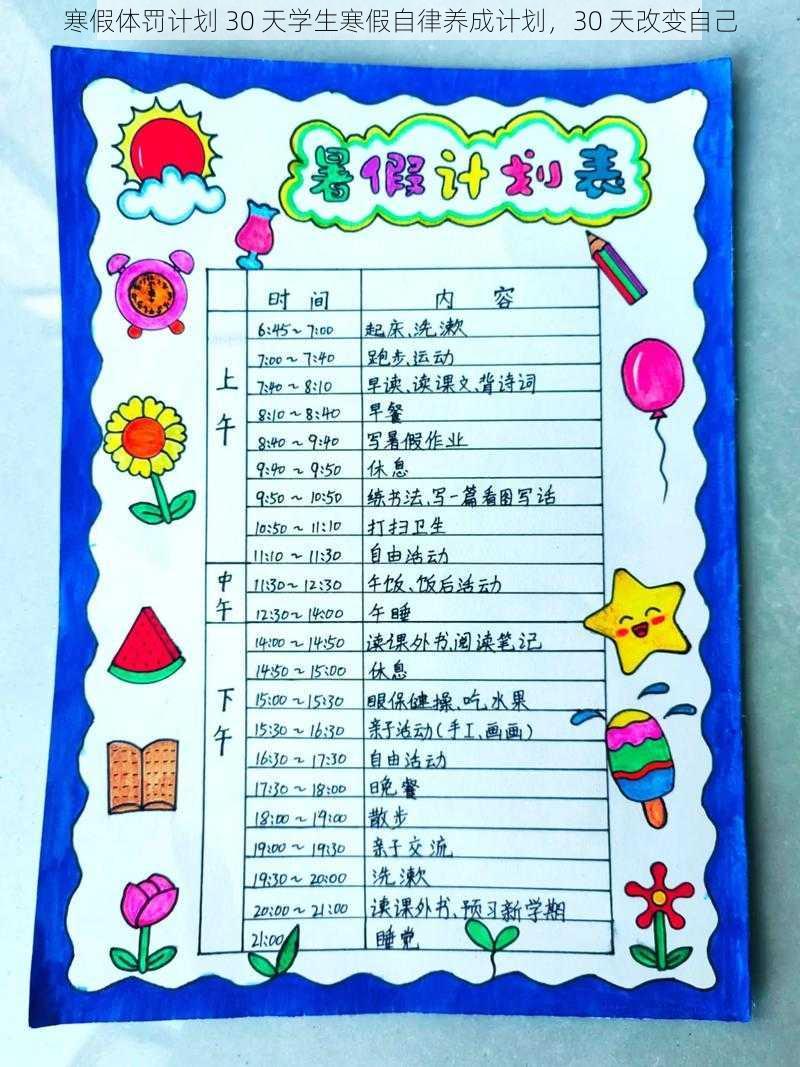 寒假体罚计划 30 天学生寒假自律养成计划，30 天改变自己
暑假计划表
时间 内容
上午
6:45~7:00 起床、洗漱
7:00~7:40 跑步、运动
7:40~8:10 早读、读课文、背诗词
8:10~8:40 早餐
8:40~9:40 写暑假作业
9:40~9:50 休息
9:50~10:50 练书法、写一篇看图写话
10:50~11:10 打扫卫生
11:10~11:30 自由活动
中午
11:30~12:30 午饭、饭后活动
12:30~14:00 午睡
下午
14:00~14:50 读课外书、阅读笔记
14:50~15:00 休息
15:00~15:30 眼保健操、吃水果
15:30~16:30 亲子活动(手工、画画)
16:30~17:30 自由活动
17:30~18:00 晚餐
18:00~19:00 散步
19:00~19:30 亲子交流
19:30~20:00 洗漱
20:00~21:00 读课外书、预习新学期
21:00 睡觉